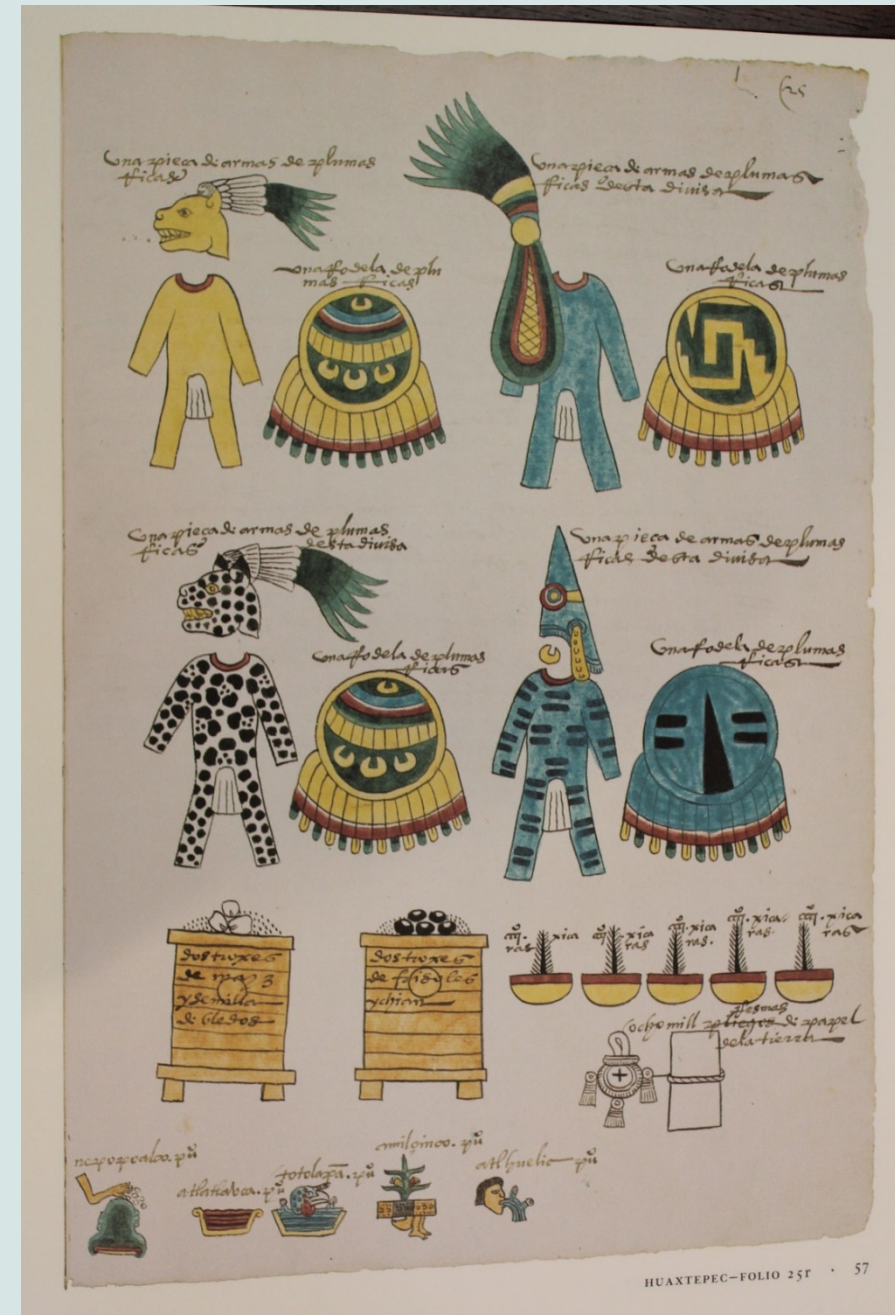 (25
una pieça de armas de plumas
ricas
una pieça de armas de plumas
ricas desta divisa
una rodela de plu
mas ricas
una rodela de plumas
ricas
una pieça de armas de plumas
ricas desta divisa
una pieça de armas de plumas
ricas desta divisa
una rodela de plumas
ricas
una rodela de plumas
ricas
dos troxes
de maiz
y semilla
de bledos
dos troxes
de frisoles
y chian
xica
ras
xica
ras
xica
ras
xica
ras
xica
ras
ocho mill pliegos de papel
resmas
de la tierra
nepopoalco. puo
atlatlavca. puo
totolapa. puo
amilçinco. puo
atlhuelic puo
HUAXTEPEC—FOLIO 25r · 57